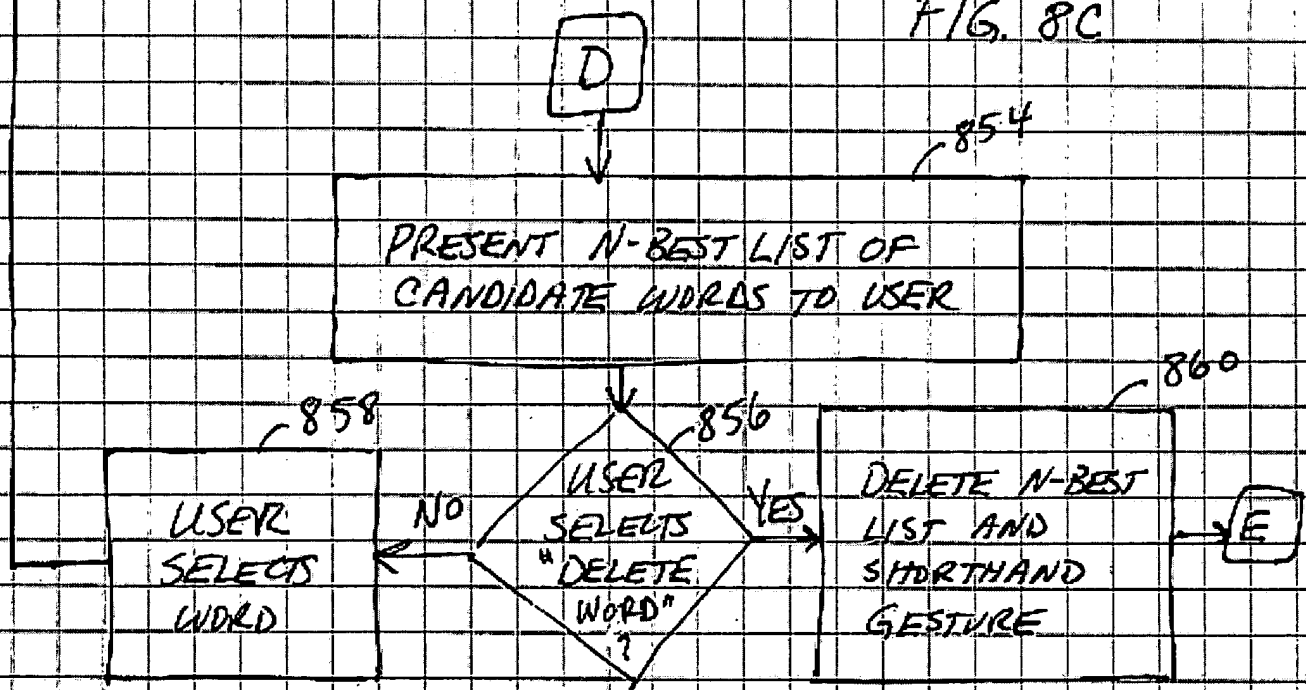 FIG. 8C
D
854
PRESENT N-BEST LIST OF
CANDIDATE WORDS TO USER
860
858
856
USER
SELECTS
WORD
NO
USER
SELECTS
"DELETE
WORD"
?
YES
DELETE N-BEST
LIST AND
SHORTHAND
GESTURE
E